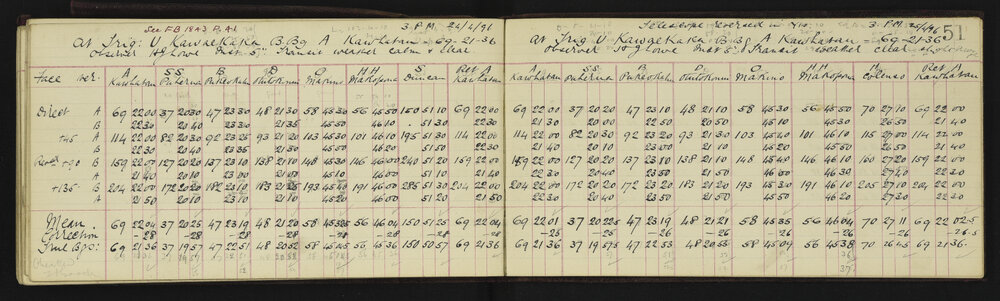 See F.B 1843 P. A1 3. P.M. 24/4/96
At Trig: U Kawaekaka B. Bg A Kawhatau 69-21-36
Observer H J Lowe Inst 5" Transit weather calm & clear
Face Ver. A Kawhatau SS Puherua B Pukeokahu D Otutokomiri O Makino HH Makopua S Duncan Ret A Kawhatau
Direct A 69 22 00 37 20 30 47 23 30 48 21 30 58 45 30 56 45 50 150 51 10 69 22 00
B 22 30 20 40 23 30 21 35 45 50 46 10 51 30 22 30
+45 A 114 22 00 82 20 30 92 23 25 93 21 20 103 45 30 101 46 10 195 51 30 114 22 00
B 22 30 20 40 23 35 21 30 45 50 46 20 51 50 22 30
Revd +90 B 159 22 00 127 20 20 137 23 10 138 21 10 148 45 30 146 46 00 240 51 20 159 22 00
A 21 40 20 10 23 00 21 00 45 10 46 00 51 10 21 40
+135 B 204 22 00 172 20 20 182 23 10 183 21 25 193 45 40 191 46 00 285 51 30 204 22 00
A 21 50 20 10 23 10 21 10 45 20 46 00 51 20 21 50
Mean 69 22 04 37 20 25 47 23 19 48 21 20 58 45 35 56 46 04 150 51 25 69 22 04
Correction -28 -28 -28 -28 -28 -28 -28 -28
True Bgs: 69 21 36 37 19 57 47 22 51 48 20 52 58 45 05 56 45 36 150 50 57 69 21 36
Telescope reversed in Ys. 3. P.M. 25/4/96
51
At Trig U Kawaekaka B. Bg A Kawhatau 69-21-36
Observer H J Lowe Inst 5" Transit weather clear
A Kawhatau SS Puherua B Pukeokahu D Otutokomiri O Makino HH Makopua H Colenso Ret A Kawhatau
69 22 00 37 20 20 47 23 10 48 21 10 58 45 30 56 45 50 70 27 10 69 22 00
21 30 20 00 22 50 20 50 45 10 45 30 26 50 21 40
114 22 00 82 20 30 92 23 20 93 21 30 103 45 40 101 46 10 115 27 00 114 22 00
21 30 20 00 23 00 21 00 45 10 45 50 26 50 21 40
159 22 00 127 20 20 137 23 10 138 21 10 148 45 40 146 46 10 160 27 20 159 22 00
22 30 20 40 23 50 21 50 46 00 46 30 27 40 22 30
204 22 00 172 20 20 182 23 20 183 21 20 193 45 30 191 46 10 205 27 10 204 22 00
22 30 20 40 23 50 21 40 45 50 46 30 27 30 22 30
69 22 01 37 20 25 47 23 19 48 21 21 58 45 35 56 46 04 70 27 11 69 22 02.5
-25 -26 -26 -26 -26 -26 -26 -26.5
69 21 36 37 19 57.5 47 22 53 48 20 55 58 45 09 56 45 38 70 26 45 69 21 36